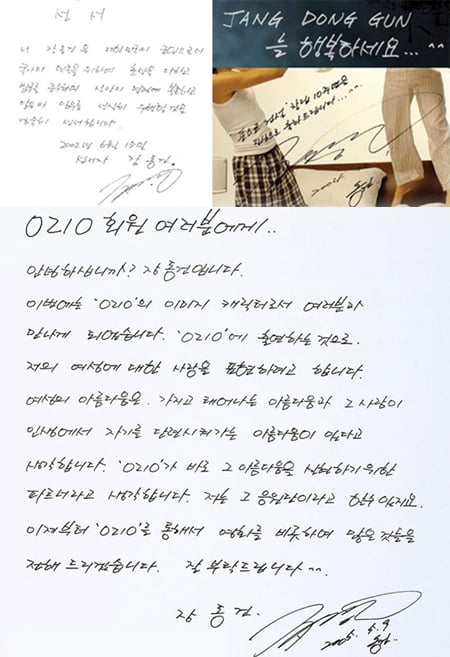 선 서
나 장동건은 대한민국의
국가와 민족을 위하여 충성을 다하고
법규를 준수하며 상관의 명령에 복종하고
맡은바 임무를 성실히 수행할것을
엄숙히 선서합니다.
2002년 6월 15일
선서자 장 동 건.
JANG DONG GUN
늘 행복하세요... ^^
창간 10주년을
진심으로 축하드립니다...^^
2004.
OZIO 회원 여러분에게..
안녕하십니까? 장동건입니다.
이번에는 'OZIO'의 이미지 캐릭터로서 여러분과
만나게 되었습니다. 'OZIO'에 출연하는 것으로.
저의 여성에 대한 사랑을 표현하려고 합니다.
여성의 아름다움은. 가지고 태어나는 아름다움과 그 사람이
인생에서 자기를 단련시켜가는 아름다움이 있다고
생각합니다. 'OZIO'가 바로 그 아름다움을 실현하기위한
파트너라고 생각합니다. 저는 그 응원단이라고 할수 있지요.
이제부터 'OZIO'를 통해서 영화를 비롯하여 많은 것들을
전해 드리겠습니다. 잘 부탁드립니다 ^^.
장 동 건.
2005. 5. 9